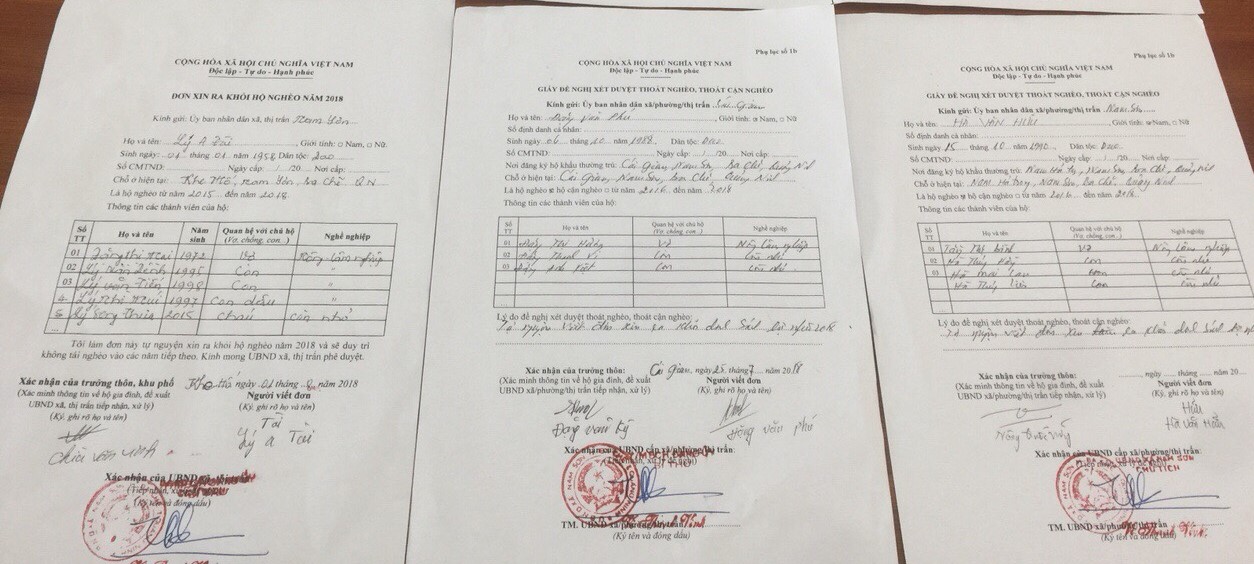 CỘNG HÒA XÃ HỘI CHỦ NGHĨA VIỆT NAM
Độc lập - Tự do - Hạnh phúc
ĐƠN XIN RA KHỎI HỘ NGHÈO NĂM 2018
Kính gửi: Ủy ban nhân dân xã, thị trấn Nam Sơn
Họ và tên: Lý A Tài, Giới tính: □ Nam, □ Nữ
Sinh ngày: 01 tháng 01 năm 1958 Dân tộc: Dao
Số CMTND: Ngày cấp: / /20 Nơi cấp:
Chỗ ở hiện tại: Khe Hố, Nam Sơn, Ba Chẽ, QN
Là hộ nghèo từ năm 2015 đến năm 2018.
Thông tin các thành viên của hộ:
Số TT Họ và tên Năm sinh Quan hệ với chủ hộ (Vợ, chồng, con..) Nghề nghiệp
01 Mai 1972 Vợ Nông lâm nghiệp
02 Lý 1995 Con "
03 Lý Văn Tiến 1998 Con "
4 Lý Thị 1997 Con dâu "
5 Lý 2015 cháu còn nhỏ
Tôi làm đơn này tự nguyện xin ra khỏi hộ nghèo năm 2018 và sẽ duy trì
không tái nghèo vào các năm tiếp theo. Kính mong UBND xã, thị trấn phê duyệt.
Xác nhận của trưởng thôn, khu phố Khe Hố ngày 01 tháng 8 năm 2018
(Xác minh thông tin về hộ gia đình, đề xuất Người viết đơn
UBND xã, thị trấn tiếp nhận, xử lý) (Ký, ghi rõ họ và tên)
(Ký, ghi rõ họ và tên)
Tài
Lý A Tài
Xác nhận của UBND
(Tiếp nhận,
(Ký tên và đóng dấu)
Phụ lục số 1b
CỘNG HÒA XÃ HỘI CHỦ NGHĨA VIỆT NAM
Độc lập - Tự do - Hạnh phúc
GIẤY ĐỀ NGHỊ XÉT DUYỆT THOÁT NGHÈO, THOÁT CẬN NGHÈO
Kính gửi: Ủy ban nhân dân xã/phường/thị trấn
Họ và tên: Đặng Văn Phú, Giới tính: □ Nam, □ Nữ
Số định danh cá nhân:
Sinh ngày 06 tháng 10 năm 1988 Dân tộc: Dao
Số CMTND: Ngày cấp: / /20 Nơi cấp:
Nơi đăng ký hộ khẩu thường trú: Cái Gian, Nam Sơn, Ba Chẽ, Quảng Ninh
Chỗ ở hiện tại: Cái Gian, Nam Sơn, Ba Chẽ, Quảng Ninh
Là hộ nghèo hộ cận nghèo □ từ năm 2016 đến năm 2018
Thông tin các thành viên của hộ:
Số TT Họ và tên Quan hệ với chủ hộ (Vợ, chồng, con..) Nghề nghiệp
01 Thị Vợ Nông lâm nghiệp
02 Đặng Thanh Vi Con Còn nhỏ
03 Đặng Anh Kiệt Con Còn nhỏ
Lý do đề nghị xét duyệt thoát nghèo, thoát cận nghèo:
Tự nguyện viết đơn xin ra khỏi danh sách hộ nghèo 2018
Cái Gian, ngày 25 tháng 7 năm 2018
Xác nhận của trưởng thôn: Người viết đơn
(Xác minh thông tin về hộ gia đình, đề xuất (Ký, ghi rõ họ và tên)
UBND xã/phường/thị trấn tiếp nhận, xử lý)
(Ký, ghi rõ họ và tên)
Đặng Văn Kỳ Đặng Văn Phú
Xác nhận của UBND cấp xã/phường/thị trấn:
TM. UBND xã/phường/thị trấn
(Ký tên và đóng dấu)
Phụ lục số 1b
CỘNG HÒA XÃ HỘI CHỦ NGHĨA VIỆT NAM
Độc lập - Tự do - Hạnh phúc
GIẤY ĐỀ NGHỊ XÉT DUYỆT THOÁT NGHÈO, THOÁT CẬN NGHÈO
Kính gửi: Ủy ban nhân dân xã/phường/thị trấn Nam Sơn
Họ và tên: HÀ VĂN HỮU, Giới tính: Nam, □ Nữ
Số định danh cá nhân:
Sinh ngày 15 tháng 10 năm 1990 Dân tộc: Dao
Số CMTND: Ngày cấp: / /20 Nơi cấp:
Nơi đăng ký hộ khẩu thường trú: Nam Sơn, Ba Chẽ, Quảng Ninh
Chỗ ở hiện tại: Nam Hả Trong, Nam Sơn, Ba Chẽ, Quảng Ninh
Là hộ nghèo hộ cận nghèo □ từ năm 2016 đến năm 2018
Thông tin các thành viên của hộ:
Số TT Họ và tên Quan hệ với chủ hộ (Vợ, chồng, con..) Nghề nghiệp
01 Thị Vợ Nông lâm nghiệp
02 Hà Thúy Con Còn nhỏ
03 Hà Mai Lan Con Còn nhỏ
Hà Thúy Con Còn nhỏ
Lý do đề nghị xét duyệt thoát nghèo, thoát cận nghèo:
Tự nguyện viết đơn xin ra khỏi danh sách hộ
ngày tháng năm 20
Xác nhận của trưởng thôn: Người viết đơn
(Xác minh thông tin về hộ gia đình, đề xuất (Ký, ghi rõ họ và tên)
UBND xã/phường/thị trấn tiếp nhận, xử lý)
(Ký, ghi rõ họ và tên)
Hữu
Hà Văn Hữu
Xác nhận của UBND cấp xã/phường/thị trấn:
CHỦ TỊCH
TM. UBND xã/phường/thị trấn
(Ký tên và đóng dấu)